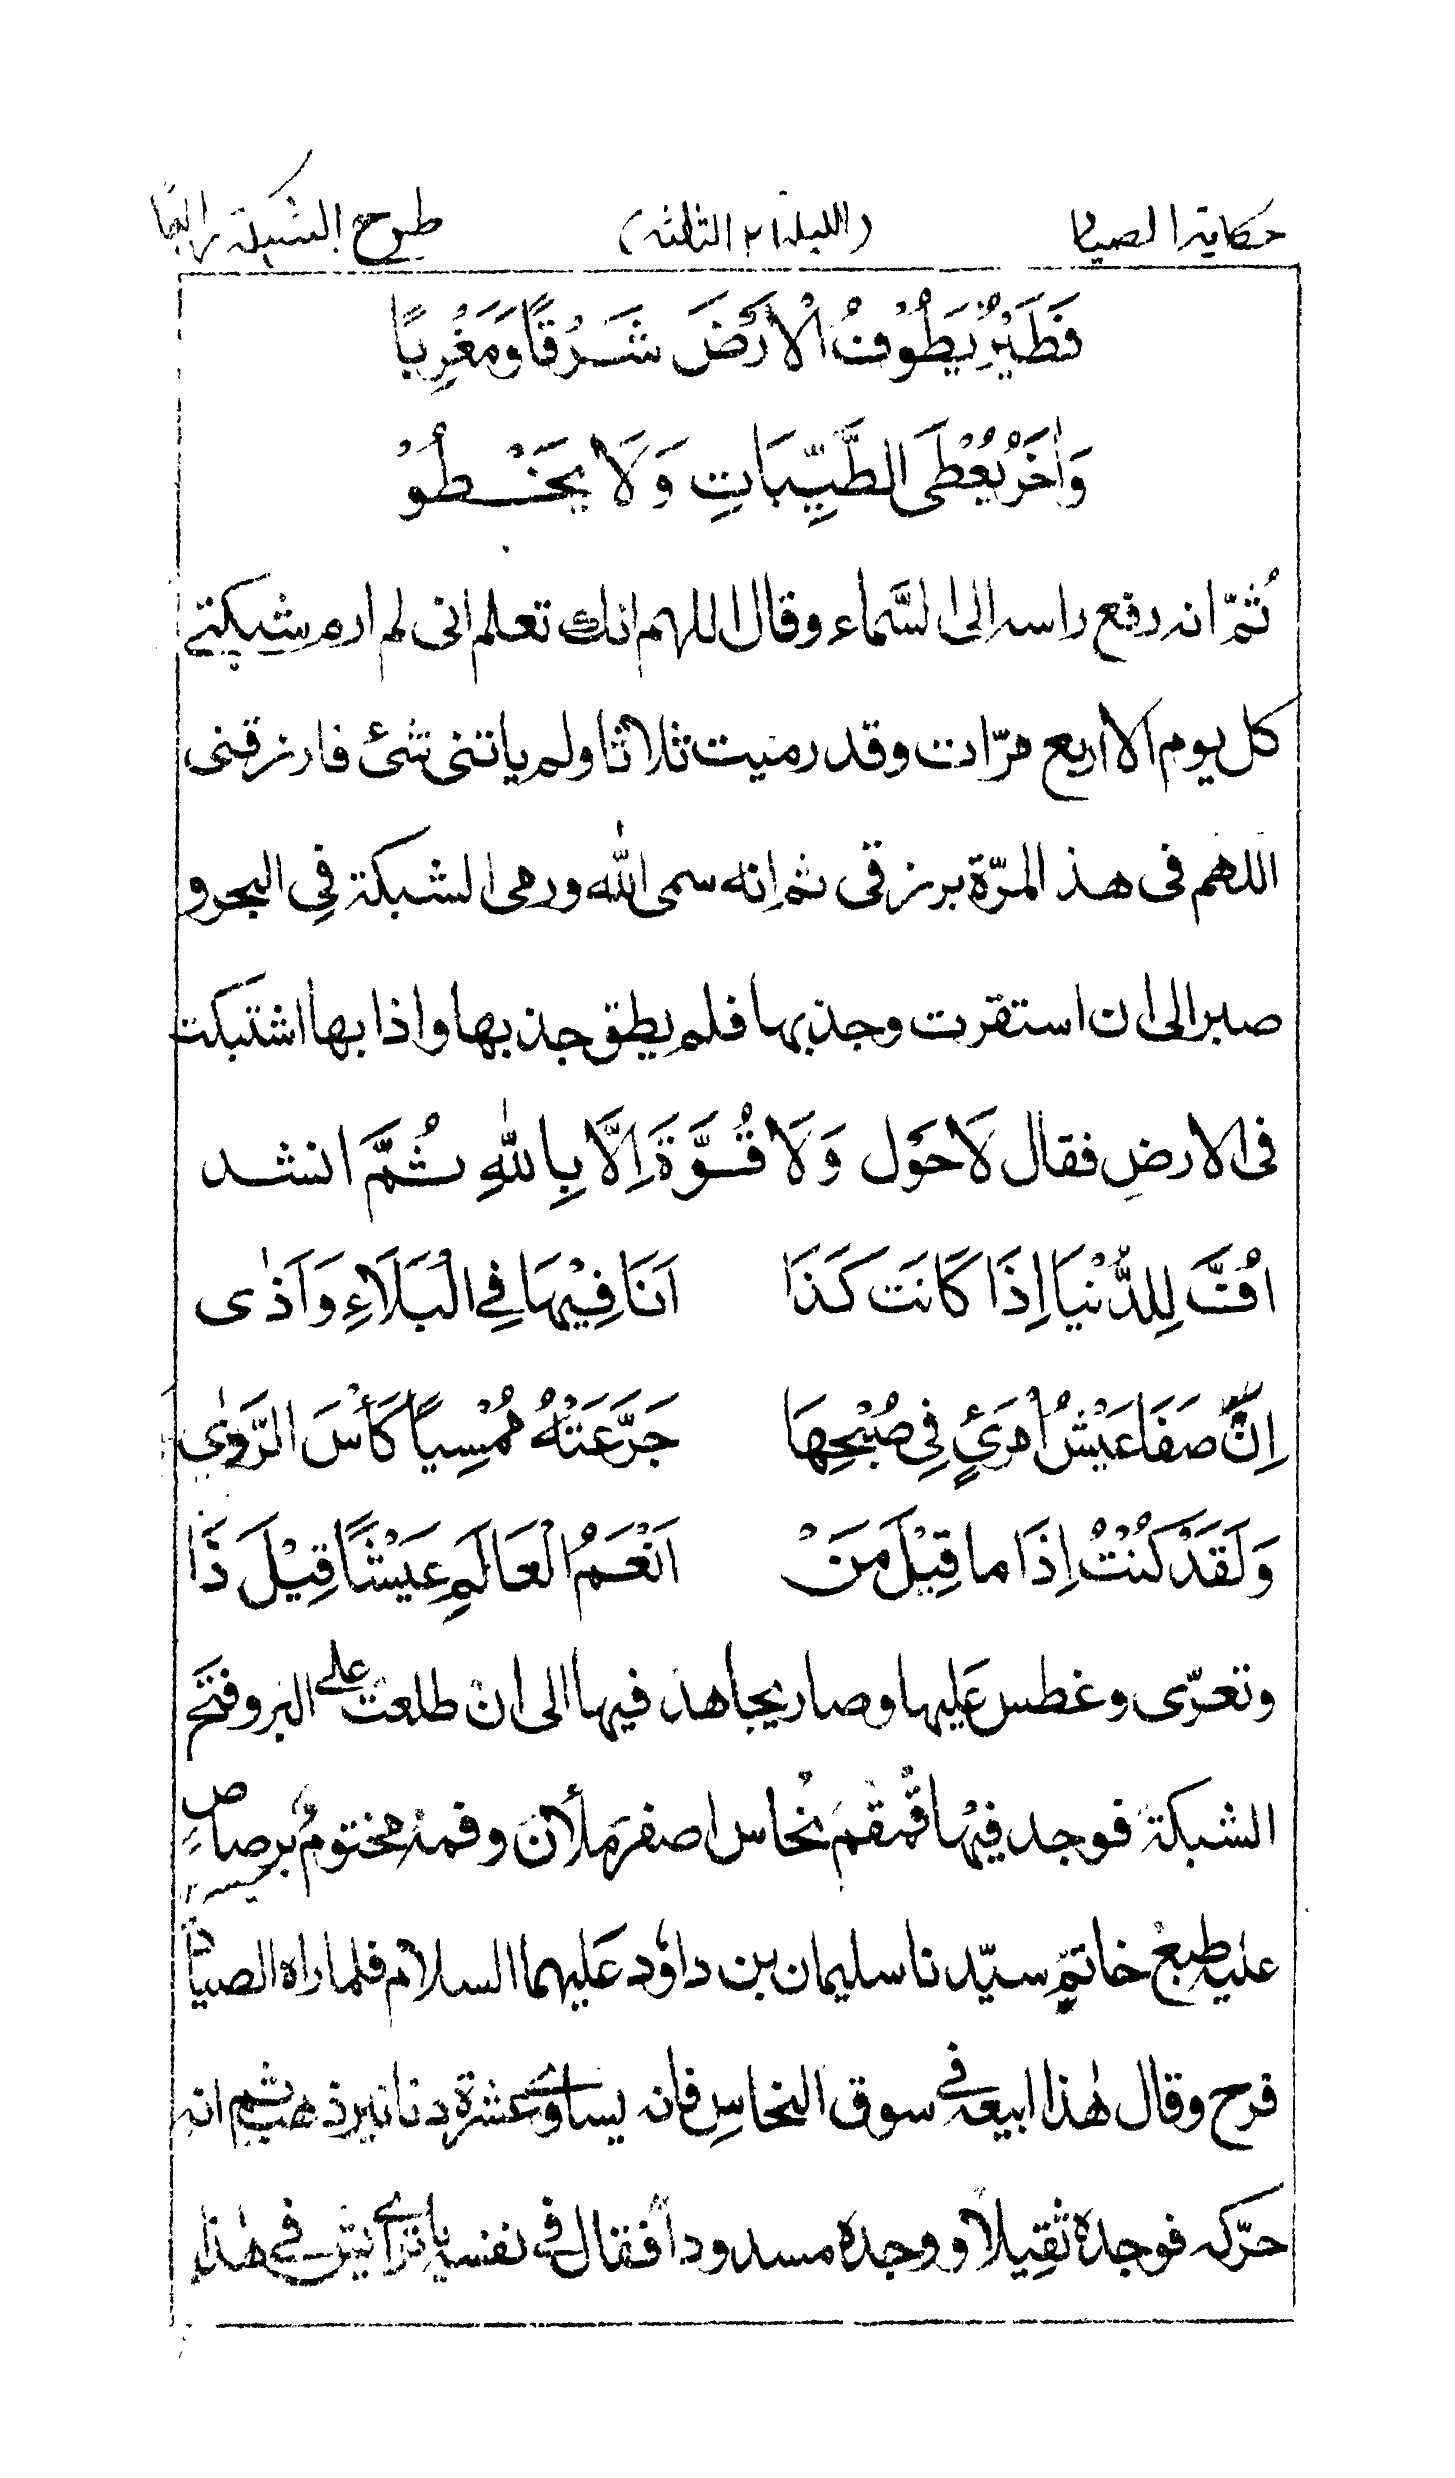 حكاية الصياد (الليلة ٣ الثالثة) طرح الشبكة رابعًا
فَطَيْرٌ يَطُوْفُ الْاَرْضَ شَرْقًا وَمَغْرِبًا
وَاٰخَرُ يُعْطَى الطَّيِّبَاتِ وَلَا يَخْطُوْ
ثُمّ انه رفع راسه الى السَّماء وقال اللهم انك تعلم انى لم ارم شبكتى
كل يوم الا اربع مرّات وقد رميت ثلاثا ولم ياتنى شئ فارزقنى
اللهم فى هذ المرّة برزقى ثم اِنه سمى اللّٰه ورمى الشبكة فِى البحر و
صبر الى ان استقرت وجذبها فلم يطق جذبها واذا بها اشتبكت
فى الارضِ فقال لَاحَوْل وَلَا قُوَّةَ اِلَّا بِاللّٰهِ ثُمَّ انشد
اُفَّ لِلدُّنْيَا اِذَا كَانَت كَذَا اَنَا فِيْهَا فِي الْبَلَاءِ وَاَذٰى
اِنَّ صَفَا عَيْشُ اُمْرَئٍ فِى صُبْحِهَا جَرَّعَتْهُ مُمْسِيًا كَاْسَ الرَّوٰى
وَلَقَدْ كُنْتُ اِذَا ما قِيْلَ مَنْ اَنْعَمُ الْعَالَمِ عَيْشًا قِيْلَ ذَا
وتعرّى وغطس عَليها وصار يجاهد فيها الى انْ طلعَت على البر وفتَح
الشبكة فوجد فيْها قُمْقُمَ نُحاس اصفرَ ملأنَ وفمهُ مختومٌ برصاصٍ
عليْه طبعُ خاتمِ سيّدنا سليمان بن داوٗد عَليهما السلام فلما راه الصيادُ
فرح وقال هٰذا ابيعه فى سوق النحاسِ فانه يساوى عشرة دنانير ذهب ثم انه
حرّكه فوجده ثَقِيلًا ووجده مسدوداً فقال فى نفسه يا ترى ايش فى هٰذا